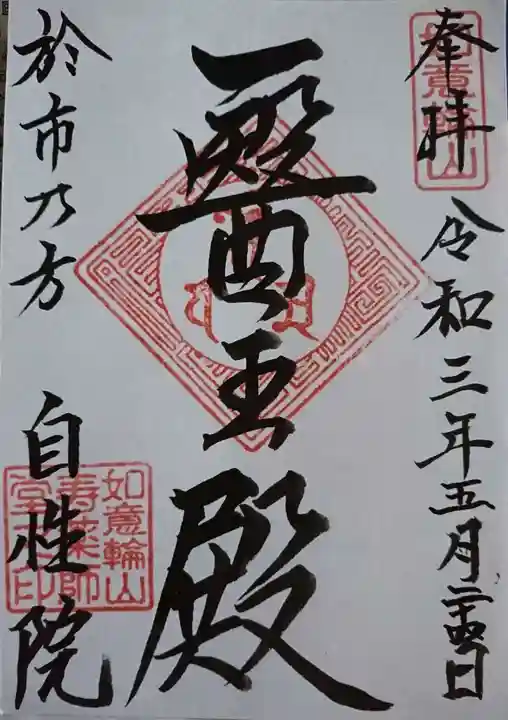 奉拝
如意輪山
令和三年五月二十四日
醫王殿
於市乃方
自性院
如意輪山